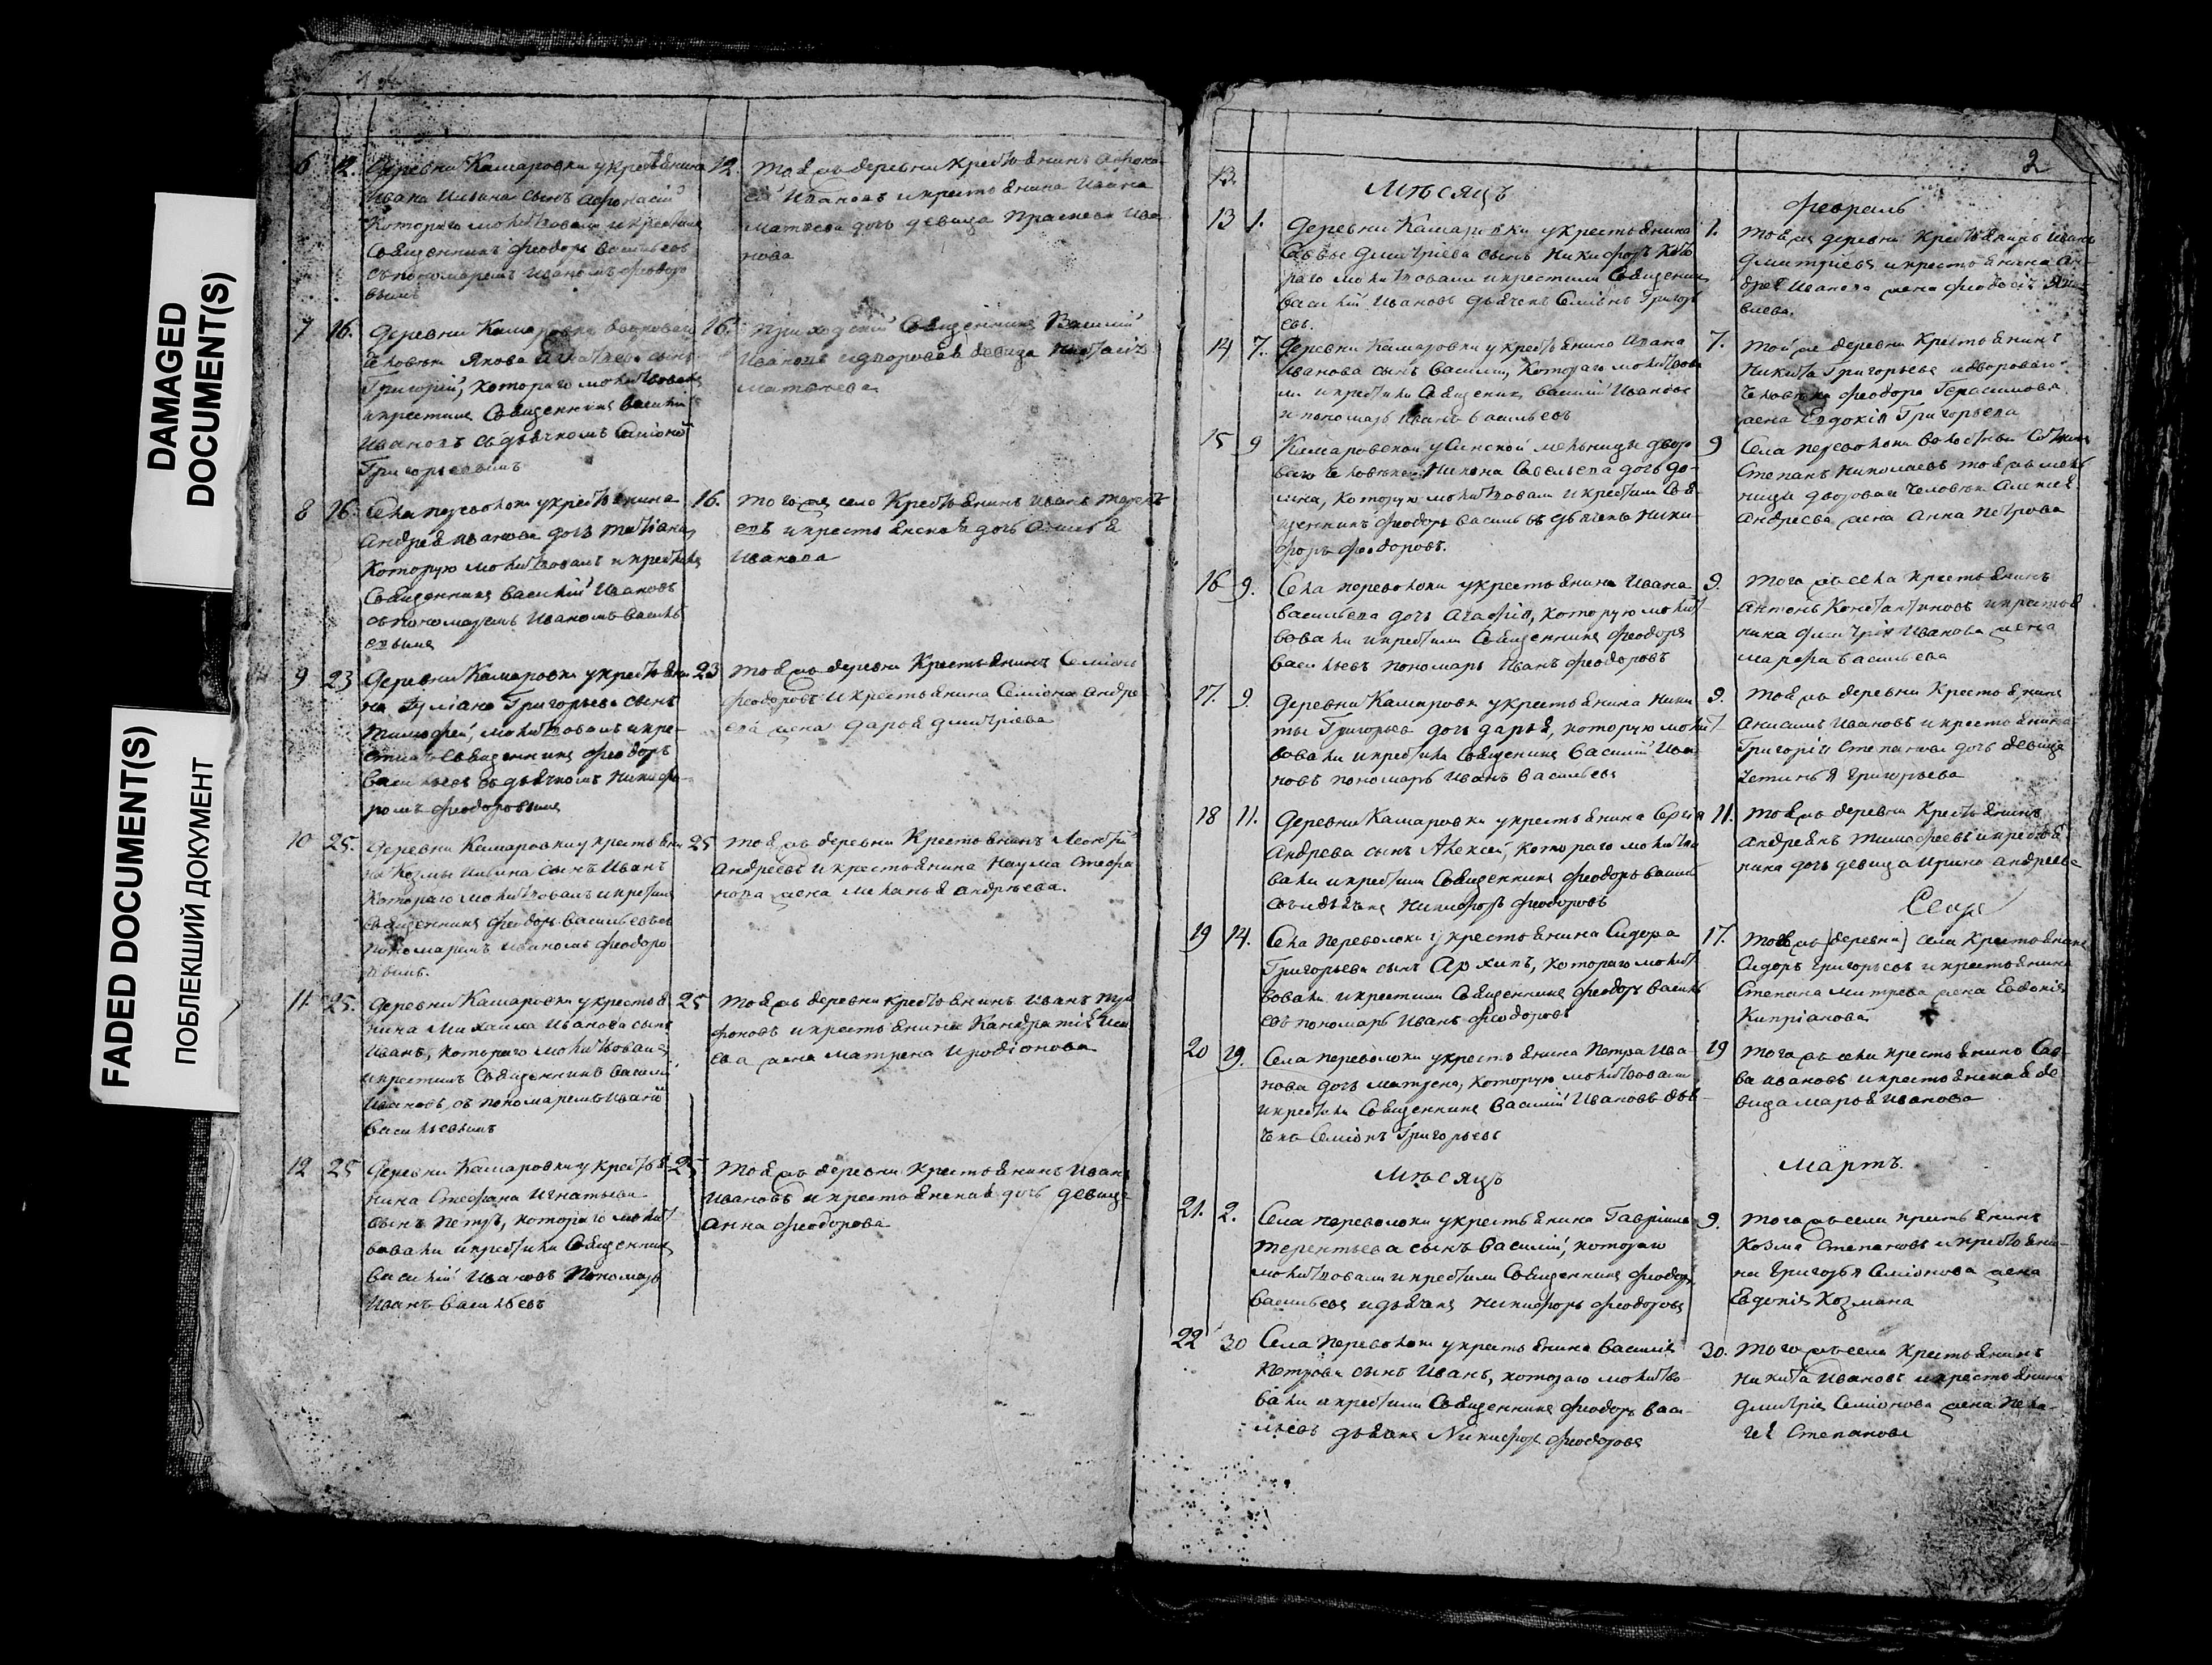 DAMAGED
DOCUMENT(S)
FADED DOCUMENT(S)
ПОБЛЕКШИЙ ДОКУМЕНТ
6 12. Деревни Камаровки укрестьянина
Ивана Ильина сынъ Афонасий
Котораго молитвовали икрестили
Священникъ Феодоръ Васильевъ
съпономаремъ Иваномъ Феодоро
вымъ
12. тояжъ деревни крестьянинъ
Ивановъ икрестьянина Ивана
дочь девица Праскева Ива
нова
7 16. Деревни Камаровки
человека Якова сынъ
Григорий, котораго молитвовалъ
икрестилъ Священникъ Василий
Ивановъ съдьячкомъ Симіономъ
Григорьевымъ
16. Приходский Священникъ Василий
Ивановъ девица
Матвеева
8 16. Села переволоки укрестьянина
Андрея Иванова дочь Татіана
Которую молитвовалъ икрестилъ
Священникъ Василий Ивановъ
съпономаремъ Иваномъ Василь
евымъ
16. тогожъ село Крестьянинъ Иванъ
евъ икрестьянская дочь
Иванова
9 23 Деревни Камаровки укрестьяни
на Григорьева сынъ
Тимофей, молитвовалъ икре-
стилъ Священникъ Феодоръ
Васильевъ съдьячкомъ Никифо
ромъ Феодоровымъ
23 тояжъ деревни Крестьянинъ Семіонъ
Феодоровъ икрестьянина Семіона Андре
ева жена Дарья Дмитріева
10 25. Деревни Камаровки укрестьяни
на Козмы Ильина сынъ Иванъ
Котораго молитвовалъ икрестилъ
Священникъ Феодоръ Васильевъ съ
пономаремъ Иваномъ Феодоро
вымъ.
25 тояжъ деревни Крестьянинъ Леонтий
Андреевъ икрестьянина Наума Стефа
нова жена Меланья Андреева.
11 25. Деревни Камаровки укрестья
нина Михаила Иванова сынъ
Иванъ, котораго молитвовалъ
икрестилъ Священникъ Василий
Ивановъ, съ пономаремъ Иваномъ
Васильевымъ
25 тояжъ деревни крестьянинъ Иванъ
фоновъ икрестьянина Кандратія
ева жена Матрена Иродіонова
12 25 Деревни Камаровки укрестья
нина Стефана Игнатьева
сынъ Петръ, котораго молит
вовали икрестили Священникъ
Василий Ивановъ Пономарь
Иванъ Васильевъ
25 тояжъ деревни крестьянинъ Иванъ
Ивановъ икрестьянская дочь девица
Анна Феодорова
2
13.
Мѣсяцъ Февраль
13 1. Деревни Камаровки укрестьянина
Саввы Дмитріева сынъ Никифоръ Кото
раго молитвовали икрестили Священникъ
Василий Ивановъ дьячекъ Семіонъ Григорь
евъ.
1. тояжъ деревни Крестьянинъ Иванъ
Дмитриевъ икрестьянина Ан-
дрея Иванова жена Феодосія
виева.
14 7. Деревни Камаровки укрестьянина Ивана
Иванова сынъ Василий, Котораго молитвова
ли икрестили Священникъ Василий Ивановъ
и пономарь Иванъ Васильевъ
7. тойже деревни Крестьянинъ
Никита Григорьевъ идвороваго
человека Феодора Герасимова
жена Евдокія Григорьева
15 9 Камаровской мельницы дворо
ваго человека Никона Савельева дочь До-
мна, которую молитвовали икрестили Свя
щенникъ Феодоръ Васильевъ дьячекъ Ники-
форъ Феодоровъ.
9 Села переволоки
Степанъ Николаевъ тояжъ мель
ницы двороваго человека Алексея
Андреева жена Анна Петрова
16 9. Села переволоки укрестьянина Ивана
Васильева дочь Агафія, которую молит
вовали икрестили Священникъ Феодоръ
Васильевъ пономарь Иванъ Феодоровъ
9. тогожъ села крестьянинъ
Антонъ Константиновъ икрестья
нина Дмитрія Иванова жена
Марфа Васильева
17. 9. Деревни Камаровки укрестьянина Ники
ты Григорьева дочь Дарья, которую молит
вовали икрестили Священникъ Василий Ива
новъ пономарь Иванъ Васильевъ
9. тояжъ деревни Крестьянинъ
Анисимъ Ивановъ икрестьянина
Григорія Степанова дочь девица
Устинья Григорьева
18 11. Деревни Камаровки укрестьянина
Андреева сынъ Алексей, котораго молитво
вали икрестили Священникъ Феодоръ Василь
евъ Никифоръ Феодоровъ
11. тояжъ деревни Крестьянинъ
Андреянъ Тимофеевъ икрестья
нина дочь девица Ирина Андреева
19 14. Села переволоки укрестьянина Сидора
Григорьева сынъ Архипъ, котораго молит
вовали икрестили Священникъ Феодоръ Василь
евъ пономарь Иванъ Феодоровъ
17. тояжъ (деревни) села Крестьянинъ
Сидоръ Григорьевъ икрестьянина
Степана Митрева жена Евдокія
Кипріанова
20 19. Села переволоки укрестьянина Петра Ива-
нова дочь Матрена, которую молитвовали
икрестили Священникъ Василий Ивановъ дья
чекъ Семіонъ Григорьевъ
19 тогожъ села крестьянинъ Сав-
ва Ивановъ икрестьянская де
вица Марья Иванова
Мѣсяцъ Мартъ.
21. 2. Села переволоки укрестьянина Гавріила
Терентьева сынъ Василий, котораго
молитвовали икрестили Священникъ Феодоръ
Васильевъ идьячекъ Никифоръ Феодоровъ
9. тогожъ села крестьянинъ
Козма Степановъ икрестьяни-
на Григорья Семіонова жена
Евдокія Козмина
22 30 Села переволоки укрестьянина Василія
Петрова сынъ Иванъ, котораго молитво-
вали икрестили Священникъ Феодоръ Васи-
льевъ дьячекъ Никифоръ Феодоровъ
30. тогожъ села Крестьянинъ
Никита Ивановъ икрестьянина
Дмитрія Семіонова жена Пела-
гия Степанова